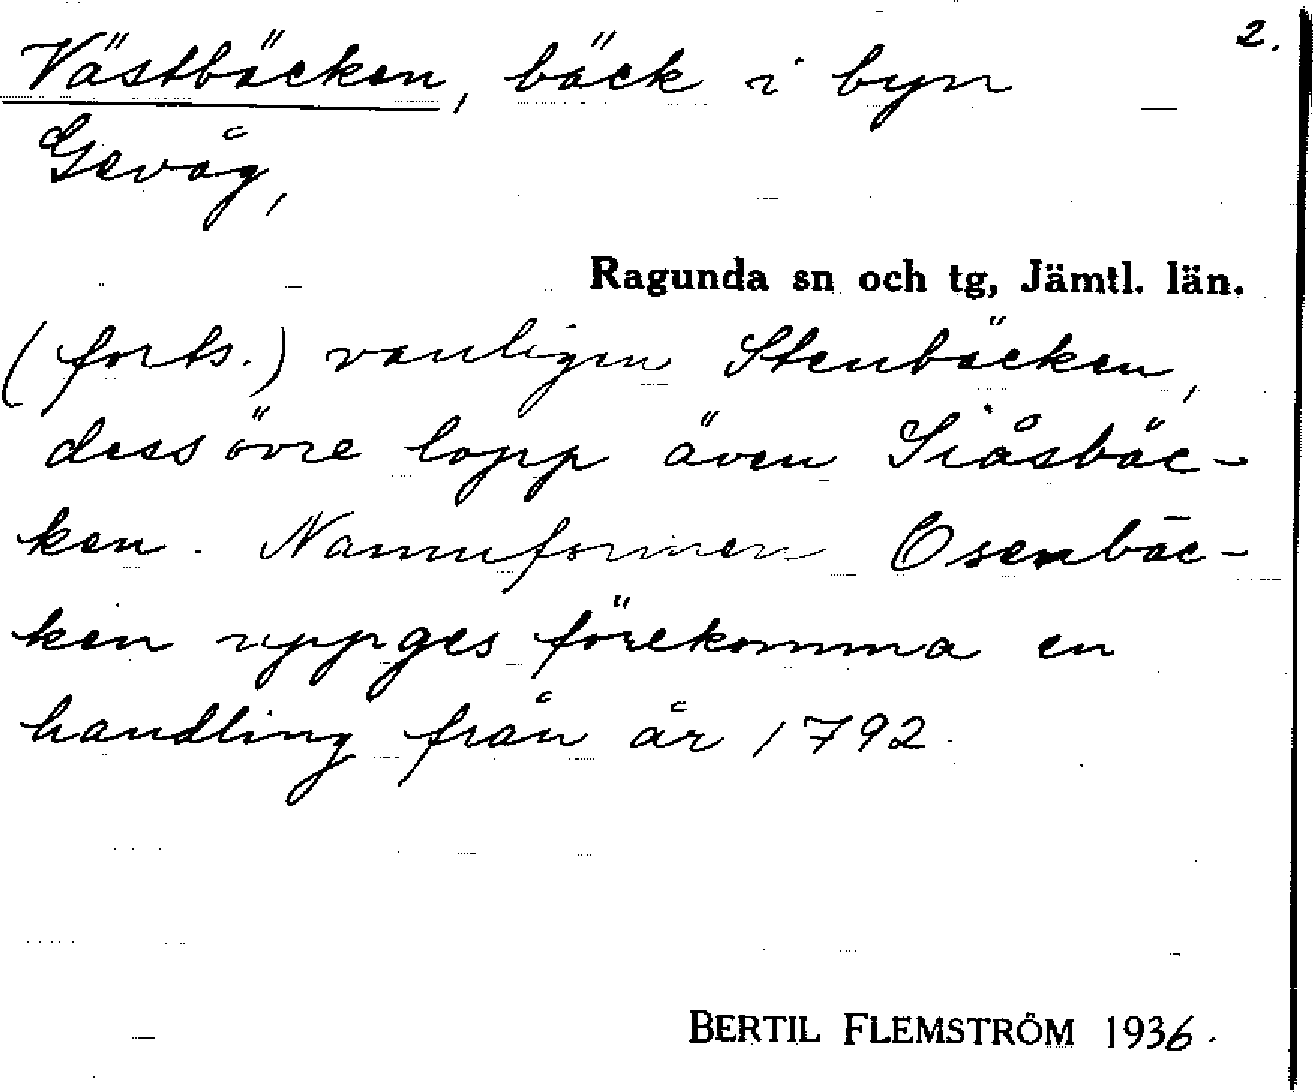 2.
Västbäcken, bäck i byn
Gevåg,
Ragunda sn och tg, Jämtl. län.
(forts.) vanligen Stenbäcken,
dess övre lopp även Siåsbäc-
ken. Namnformen Osenbäc-
ken uppges förekomma en
handling från år 1792.
BERTIL FLEMSTRÖM 1936.